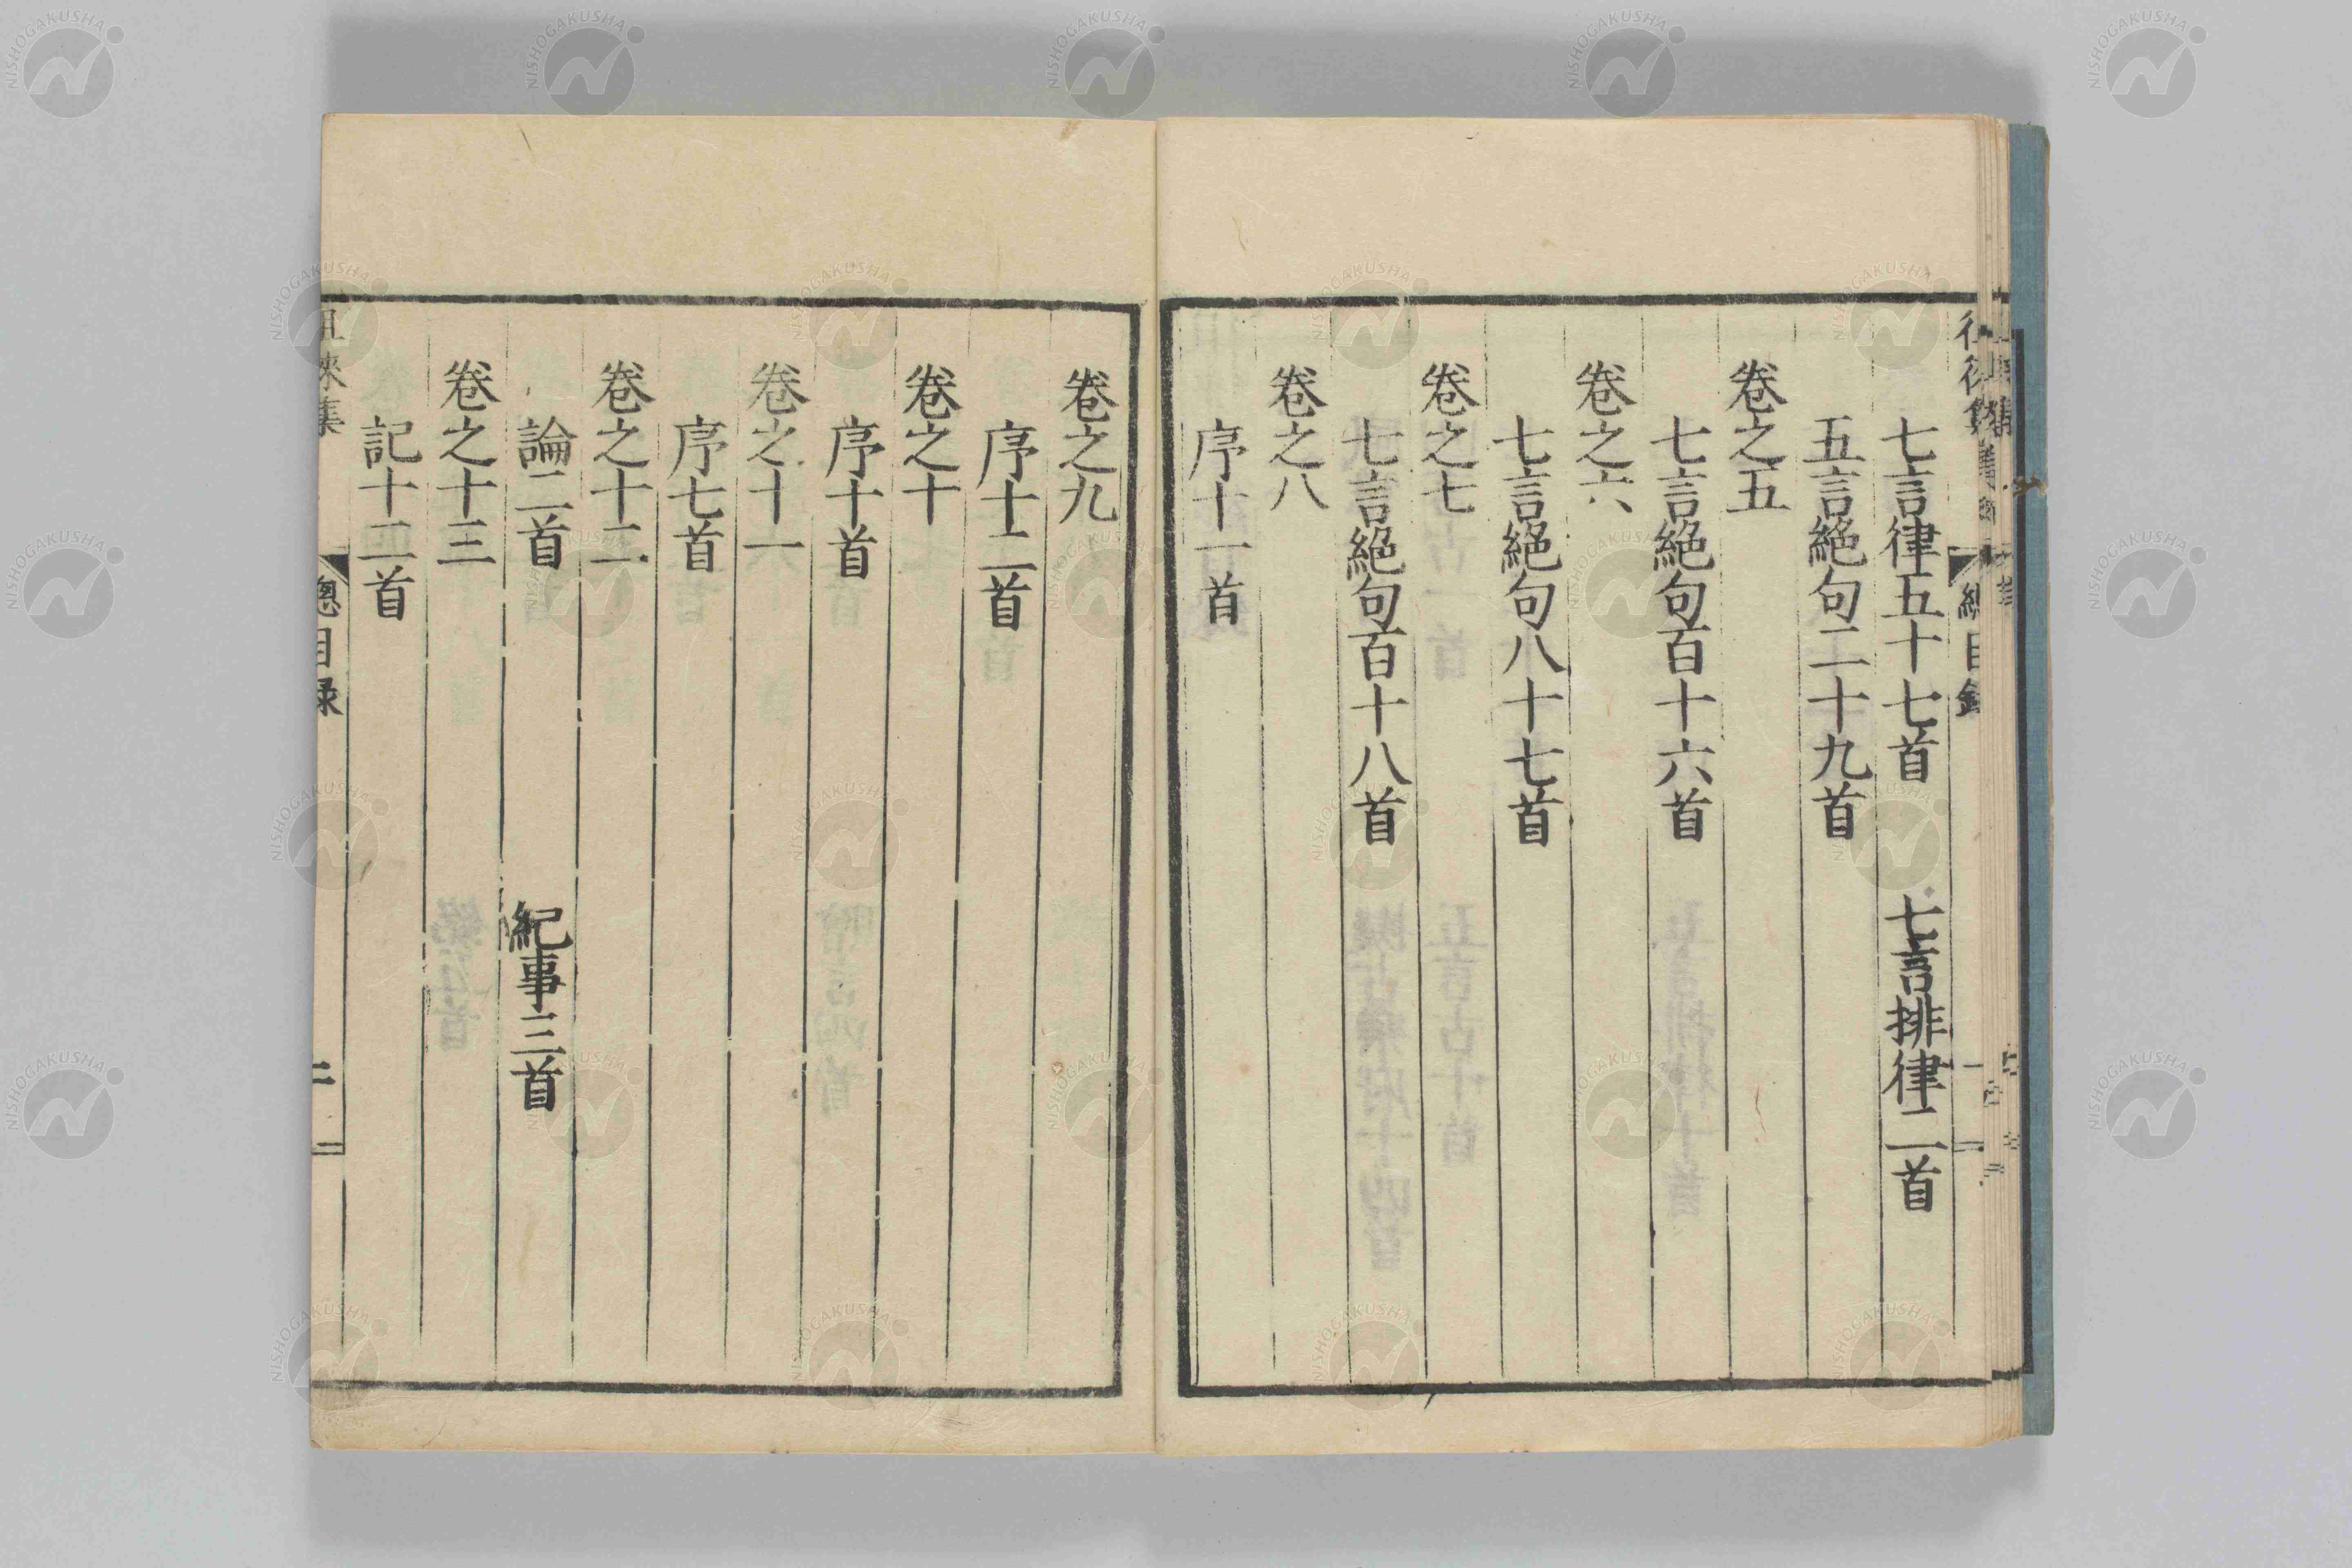 七言律五十七首　七言排律二首
五言絕句二十九首
卷之五
七言絕句百十六首
卷之六
七言絕句八十七首
卷之七
七言絕句百十八首
卷之八
序十一首
卷之九
序十二首
卷之十
序十首
卷之十一
序七首
卷之十二
論二首　紀事三首
卷之十三
記十二首
徠集　總目録　二
NISHOGAKUSHA